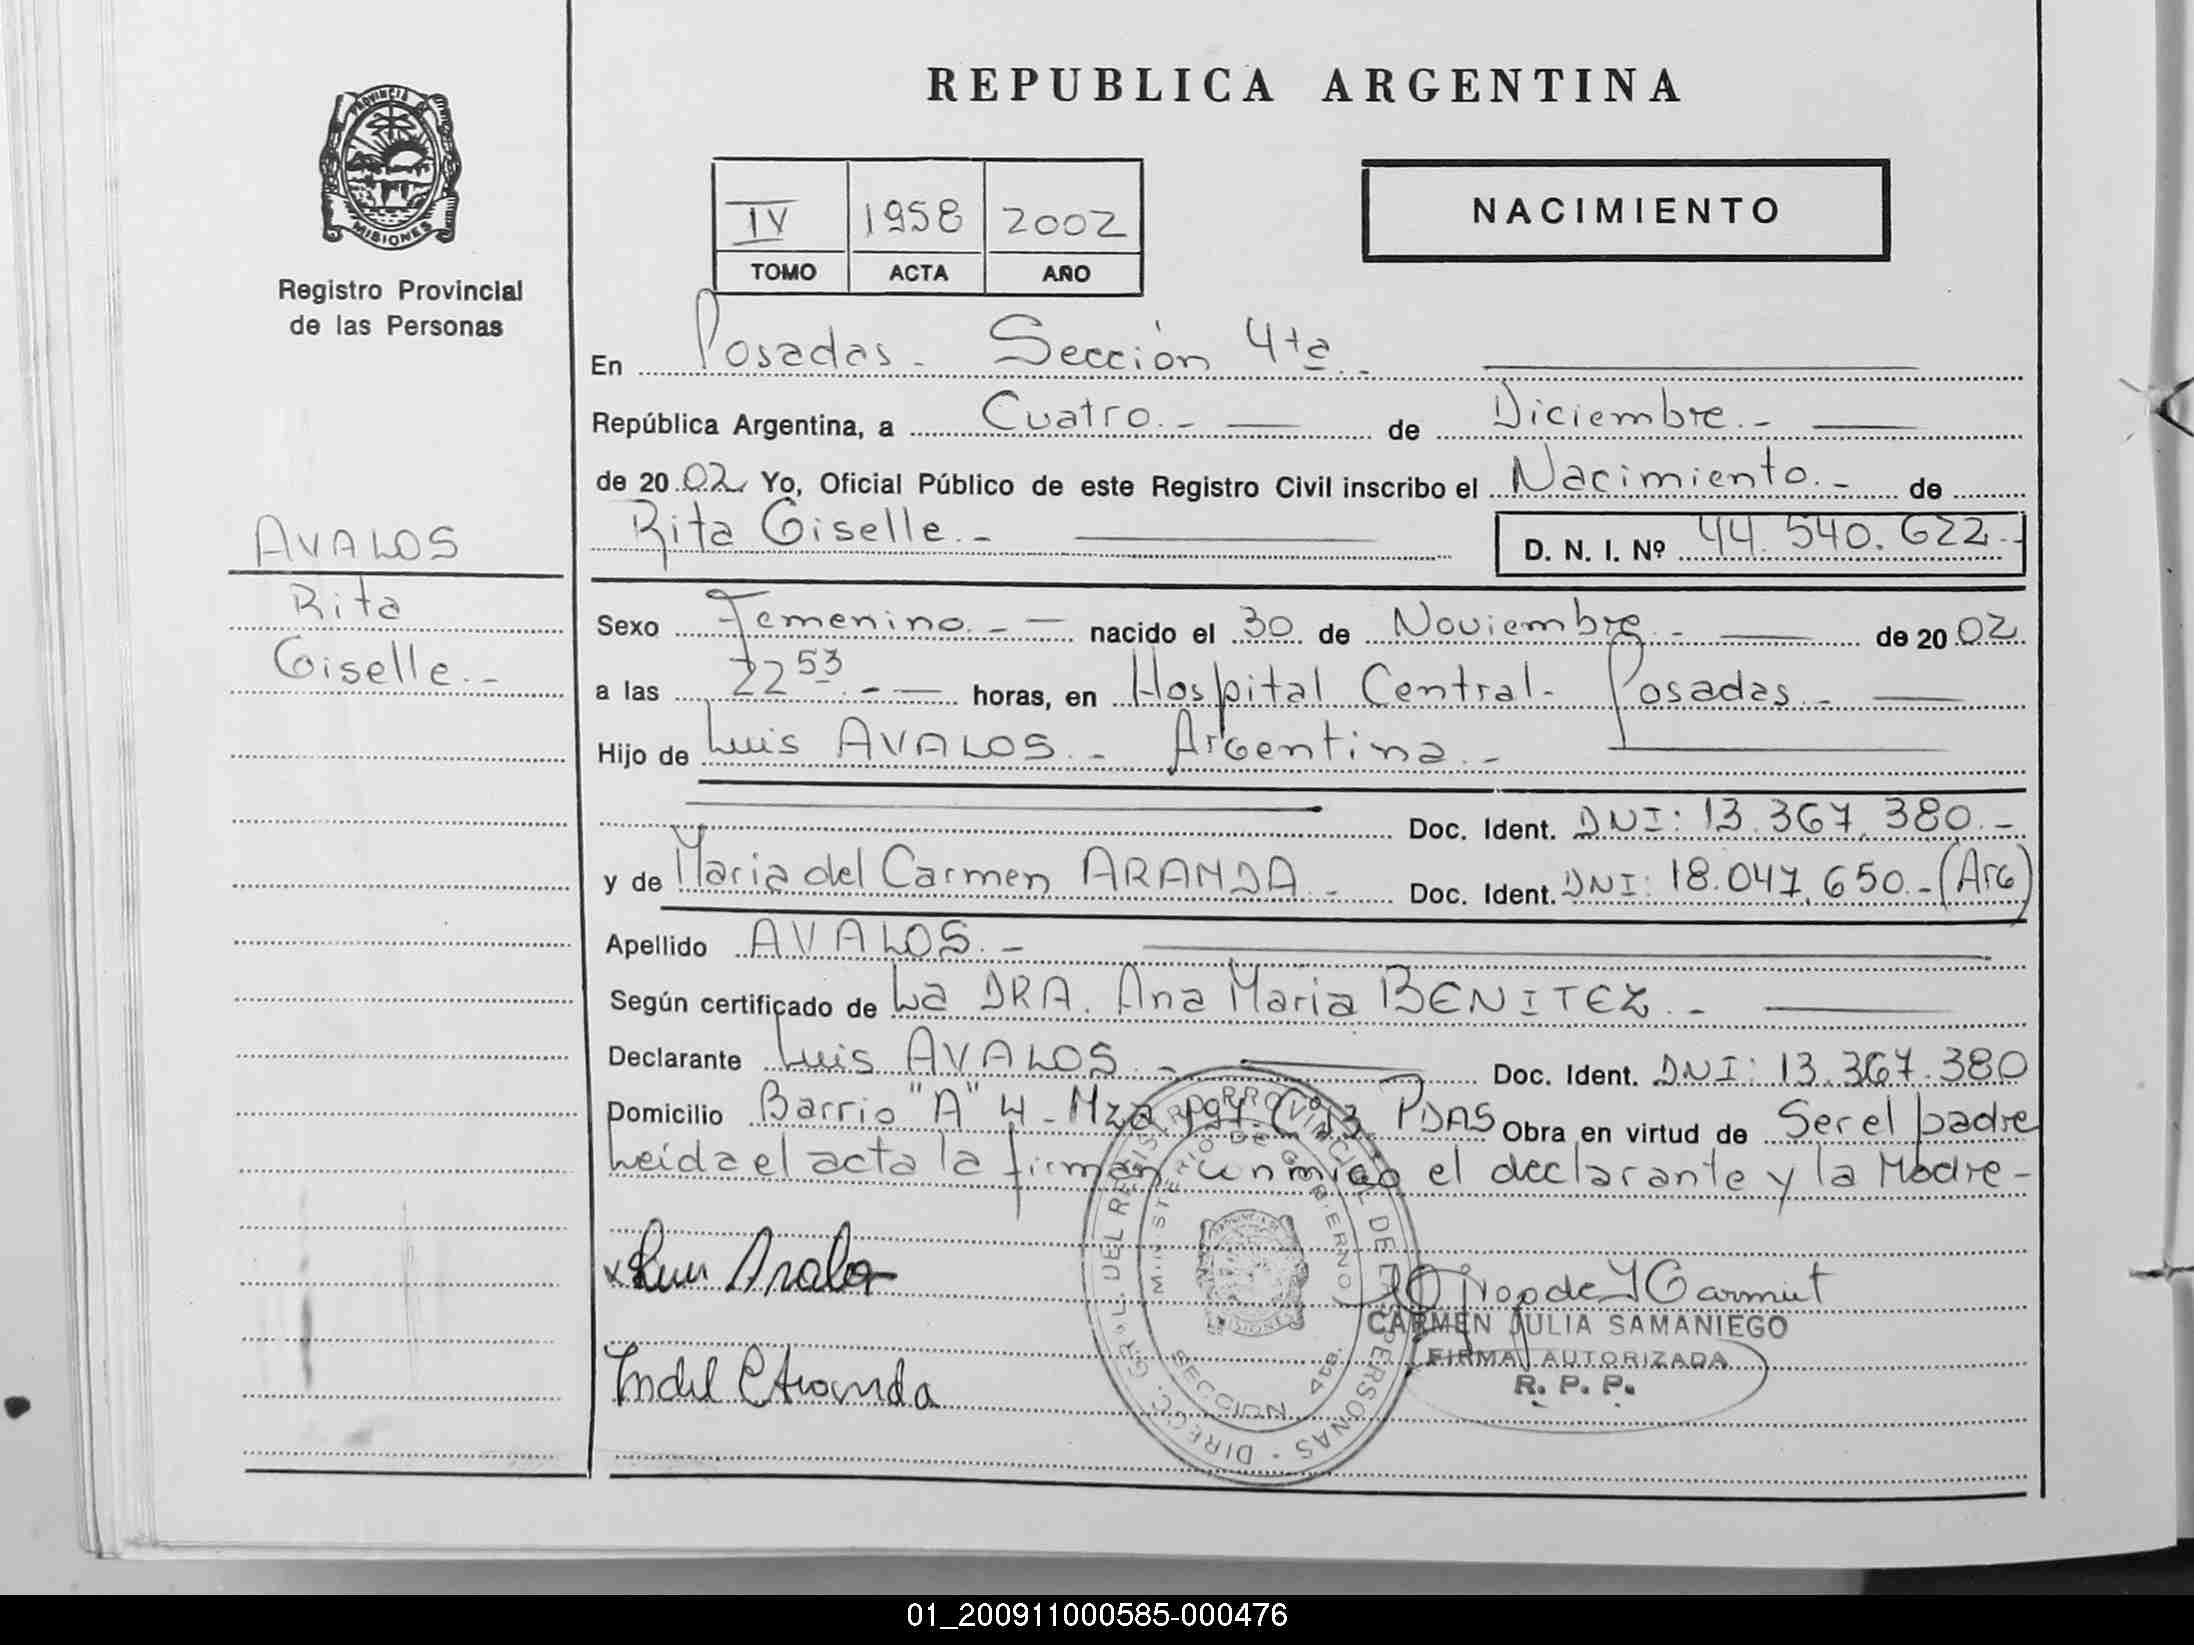 REPUBLICA ARGENTINA
PROVINCIA DE
MISIONES
Registro Provincial
de las Personas
IV 1958 2002
TOMO ACTA AÑO
NACIMIENTO
En Posadas - Sección 4ta.-
República Argentina, a Cuatro.- de Diciembre.-
de 2002 Yo, Oficial Público de este Registro Civil inscribo el Nacimiento.- de
Rita Giselle.- D. N. I. Nº 44.540.622.-
AVALOS
Rita
Giselle.-
Sexo Femenino.- nacido el 30 de Noviembre.- de 2002
a las 22 53.- horas, en Hospital Central - Posadas.-
Hijo de Luis AVALOS.- Argentina.-
Doc. Ident. DNI: 13.367.380.-
y de Maria del Carmen ARANDA.- Doc. Ident. DNI: 18.047.650.- (Arg)
Apellido AVALOS.-
Según certificado de La DRA. Ana Maria BENITEZ.-
Declarante Luis AVALOS.- Doc. Ident. DNI: 13.367.380
Domicilio Barrio "A" 4 - Mza PDAS Obra en virtud de Ser el padre
Leída el acta la firman conmigo el declarante y la Madre-
Luis Avalos
Aranda
DIRECC. GRAL. DEL REGISTRO PROVINCIAL DE LAS PERSONAS
MINISTERIO DE GOBIERNO
SECCION 4ta.
CARMEN JULIA SAMANIEGO
FIRMA AUTORIZADA
R. P. P.
01_200911000585-000476